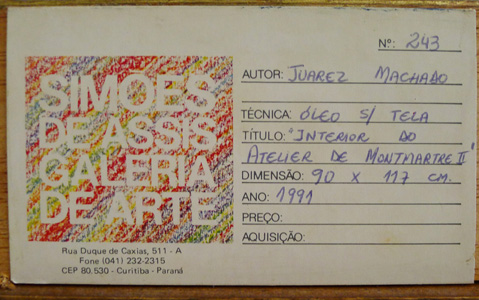 Nº: 243
SIMÕES
DE ASSIS
GALERIA
DE ARTE
Rua Duque de Caxias, 511 - A
Fone (041) 232-2315
CEP 80.530 - Curitiba - Paraná
AUTOR: JUAREZ MACHADO
TÉCNICA: ÓLEO S/ TELA
TÍTULO: "INTERIOR DO
ATELIER DE MONTMARTRE II"
DIMENSÃO: 90 X 117 CM.
ANO: 1991
PREÇO:
AQUISIÇÃO: